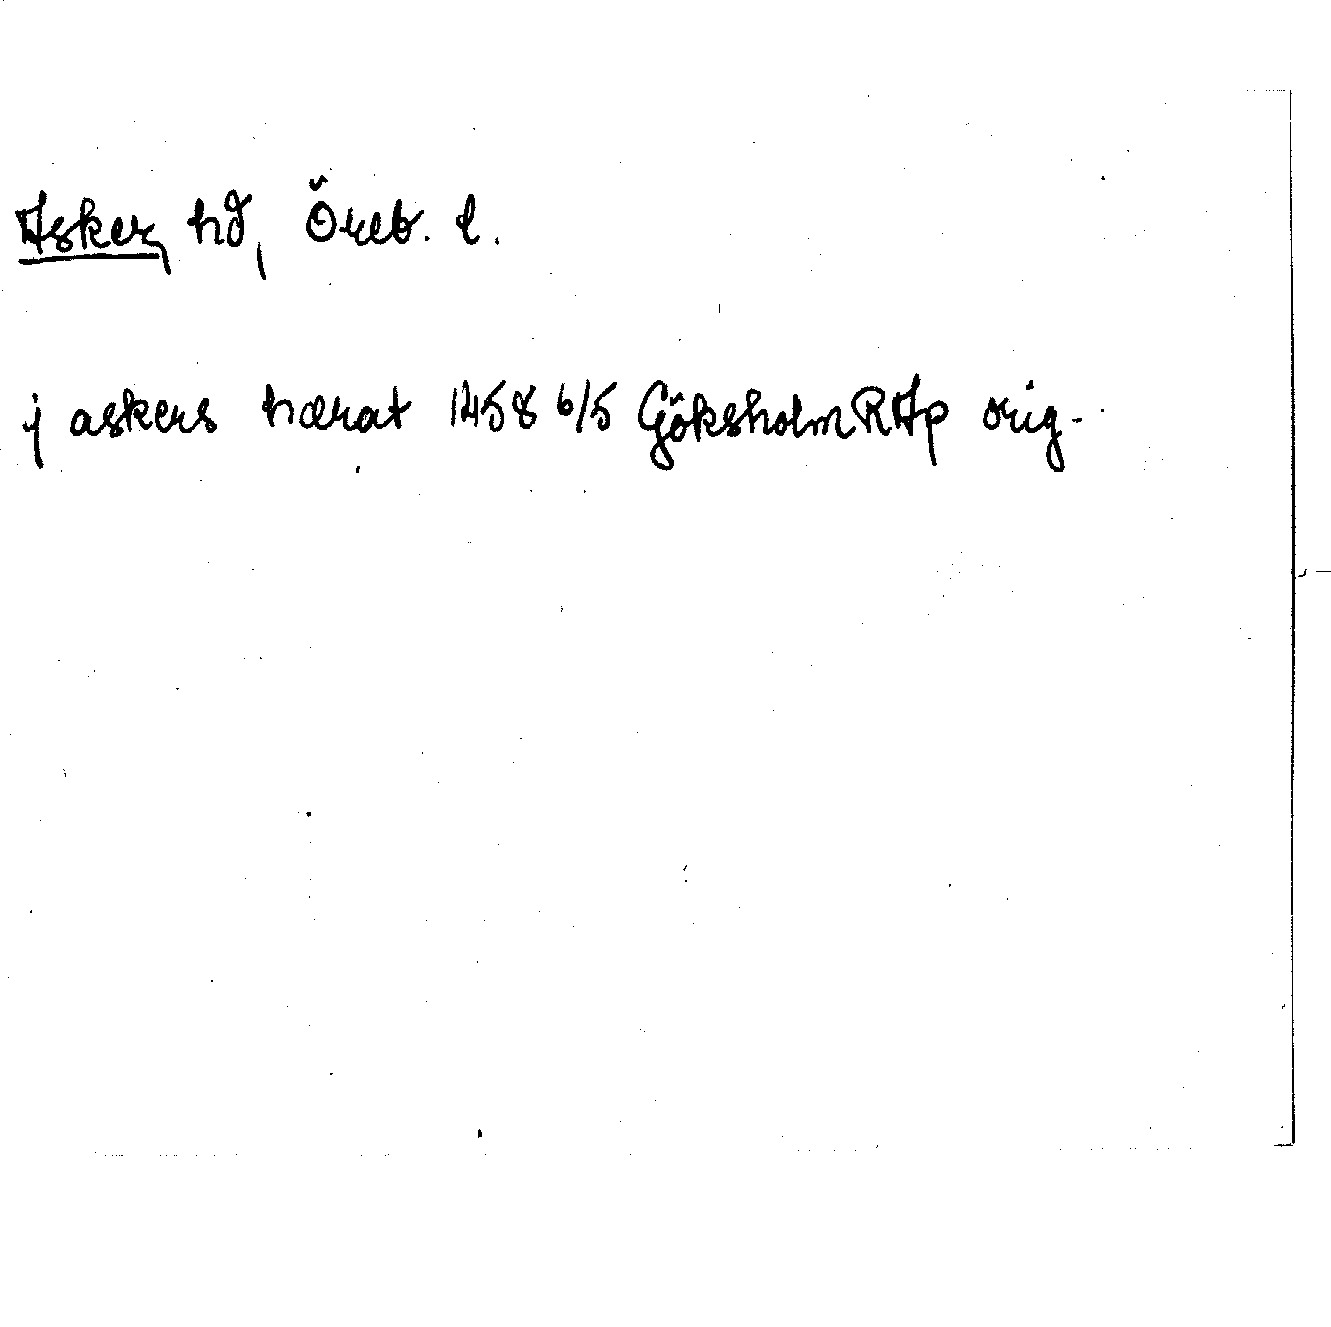 Asker, hd, Öreb. l.
j askers hærat 1458 6/5 Göksholm RAp orig.